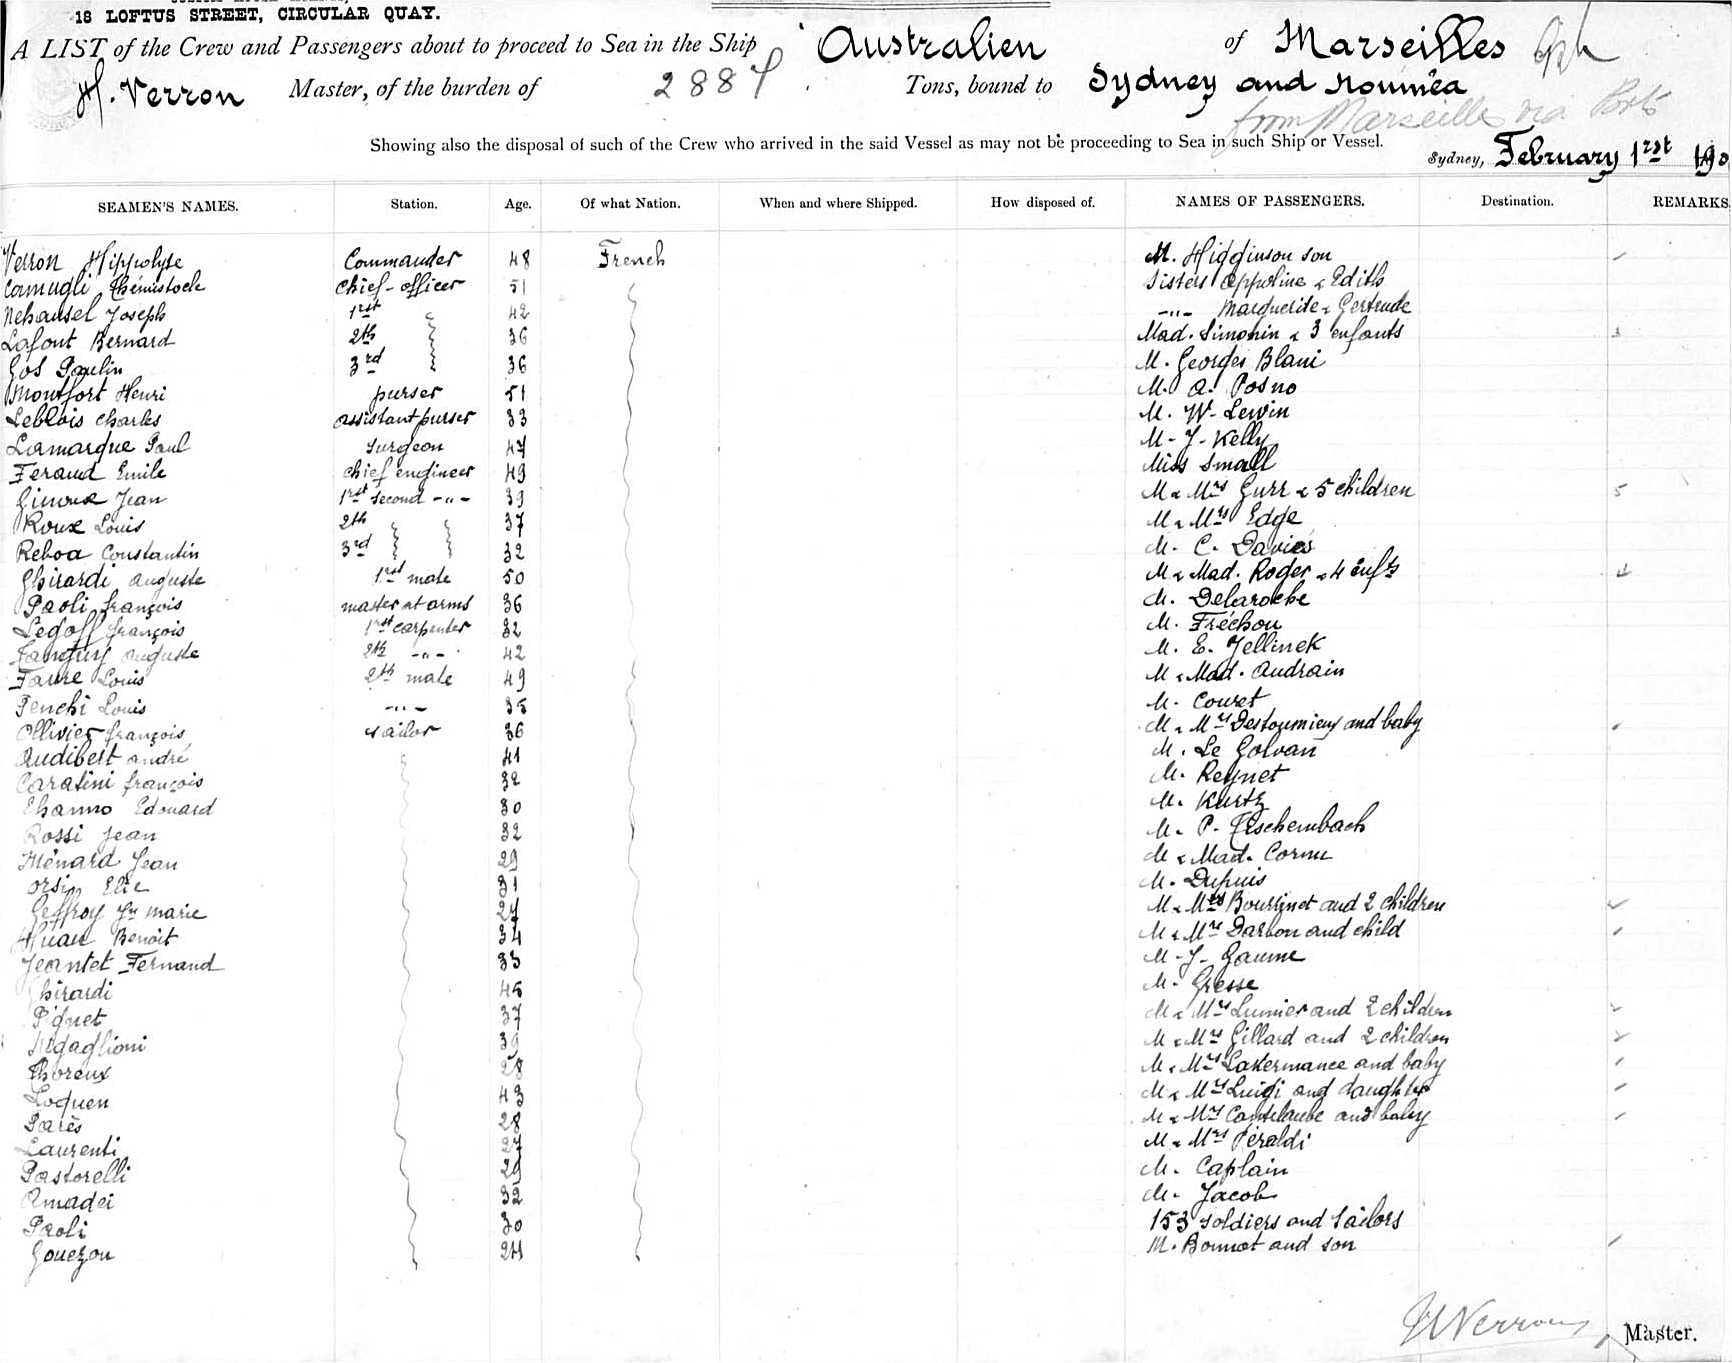 18 LOFTUS STREET, CIRCULAR QUAY.
A LIST of the Crew and Passengers about to proceed to Sea in the Ship Australien of Marseilles
H. Verron Master, of the burden of 2887 Tons, bound to Sydney and Nouméa
from Marseilles via Ports
Showing also the disposal of such of the Crew who arrived in the said Vessel as may not be proceeding to Sea in such Ship or Vessel.
Sydney, February 1rst 190
SEAMEN'S NAMES. Station. Age. Of what Nation. When and where Shipped. How disposed of. NAMES OF PASSENGERS. Destination. REMARKS.
Verron Hippolyte Commander 48 French M. Higginson son
Camugli Thémistocle chief-officer 51 Sisters Appoline & Edith
Nehausel Joseph 1rst 42 -"- Marguerite & Gertrude
Lafont Bernard 2th 36 Mad. Simonin & 3 enfants 3
Gos Paulin 3rd 36 M. Georges Blani
Montfort Henri purser 51 M. A. Posno
Leblois Charles assistant purser 33 M. W. Lewin
Lamarque Paul Surgeon 47 M. J. Kelly
Feraud Emile chief engineer 49 Miss Small
Gimoux Jean 1rst second -"- 39 M & Mrs Gurr & 5 children 5
Roux Louis 2th 37 M & Mrs Edge
Reboa Constantin 3rd 32 M. C. Davies
Ghirardi Auguste 1rst mate 50 M & Mad. Roger & 4 enfts 4
Paoli françois master at arms 36 M. Delaroche
Legoff françois 1rst carpenter 32 M. Fréchou
Tanguy Auguste 2th -"- 42 M. E. Jellinek
Faure Louis 2th mate 49 M & Mad. Audrain
Penchi Louis -"- 35 M. Couret
Ollivier françois sailor 36 M & Mrs Destoumieux and baby
Audibert andré 41 M. Le Golvan
Caratini françois 32 M. Reynet
Ehanno Edouard 30 M. Kurtz
Rossi Jean 32 M. P. Eschembach
Ménard Jean 29 M & Mad. Cornu
Orsi Elie 31 M. Dupuis
Geffroy Yn marie 27 M & Mrs Boursinot and 2 children
Huau Benoit 34 M & Mrs Darbon and child
Jeantet Fernand 33 M. J. Gaume
Ghirardi 45 M. Gresse
Piquet 37 M & Mrs Lumier and 2 children
Migaglioni 39 M & Mrs Gillard and 2 children
Thoreux 28 M & Mrs Lakermance and baby
Loquen 43 M & Mrs Luigi and daughter
Parès 28 M & Mrs Canselaube and baby
Laurenti 27 M & Mrs Peraldi
Pastorelli 29 M. Caplain
Amadei 32 M. Jacob
Paoli 30 153 soldiers and sailors
Gouezou 24 M. Bonnot and son
H Verron Master.